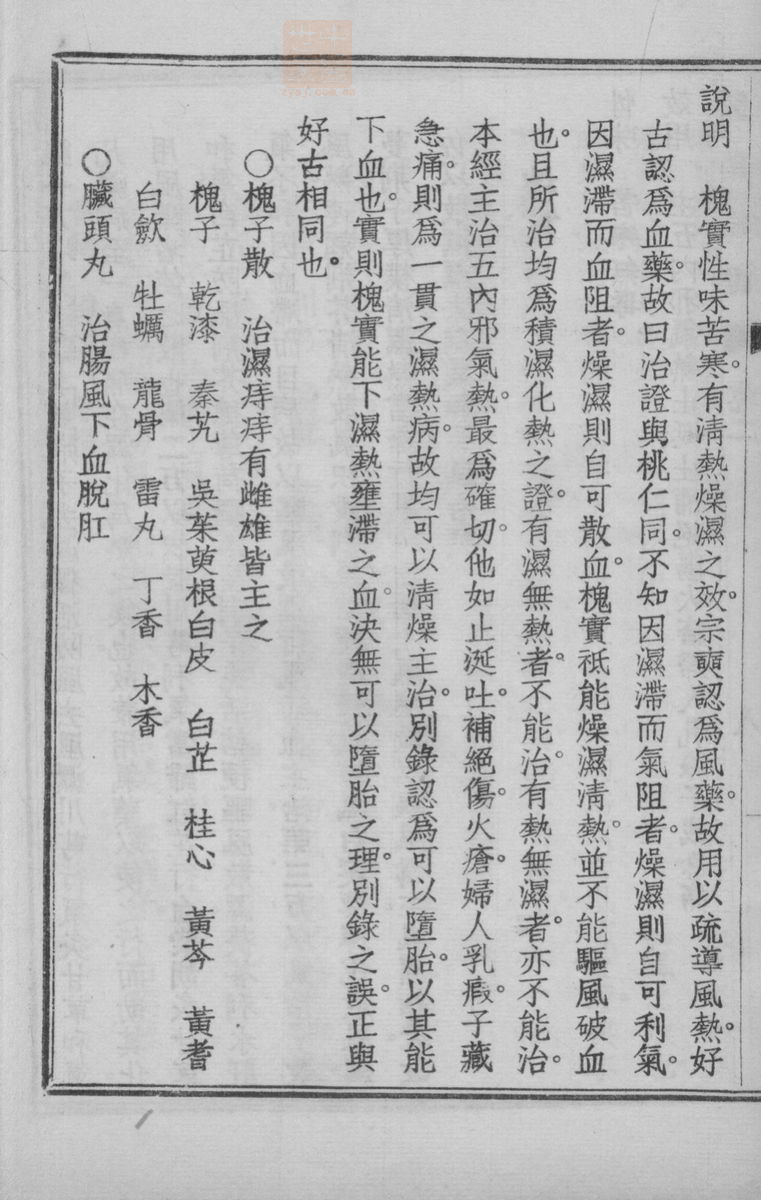 說明　槐實性味苦寒。有淸熱燥濕之效。宗奭認爲風藥。故用以疏導風熱。好
古認爲血藥。故曰治證與桃仁同。不知因濕滯而氣阻者。燥濕則自可利氣。
因濕滯而血阻者。燥濕則自可散血。槐實祗能燥濕淸熱。並不能驅風破血
也。且所治均爲積濕化熱之證。有濕無熱者。不能治。有熱無濕者。亦不能治。
本經主治五內邪氣熱。最爲確切。他如止涎吐。補絕傷。火瘡。婦人乳瘕。子藏
急痛。則爲一貫之濕熱病。故均可以淸燥主治。別錄認爲可以墮胎。以其能
下血也。實則槐實能下濕熱壅滯之血。決無可以墮胎之理。別錄之誤。正與
好古相同也。
○槐子散　治濕痔痔有雌雄皆主之
槐子　乾漆　秦艽　吳茱萸根白皮　白芷　桂心　黃芩　黃耆
白歛　牡蠣　龍骨　雷丸　丁香　木香
○臟頭丸　治腸風下血脫肛